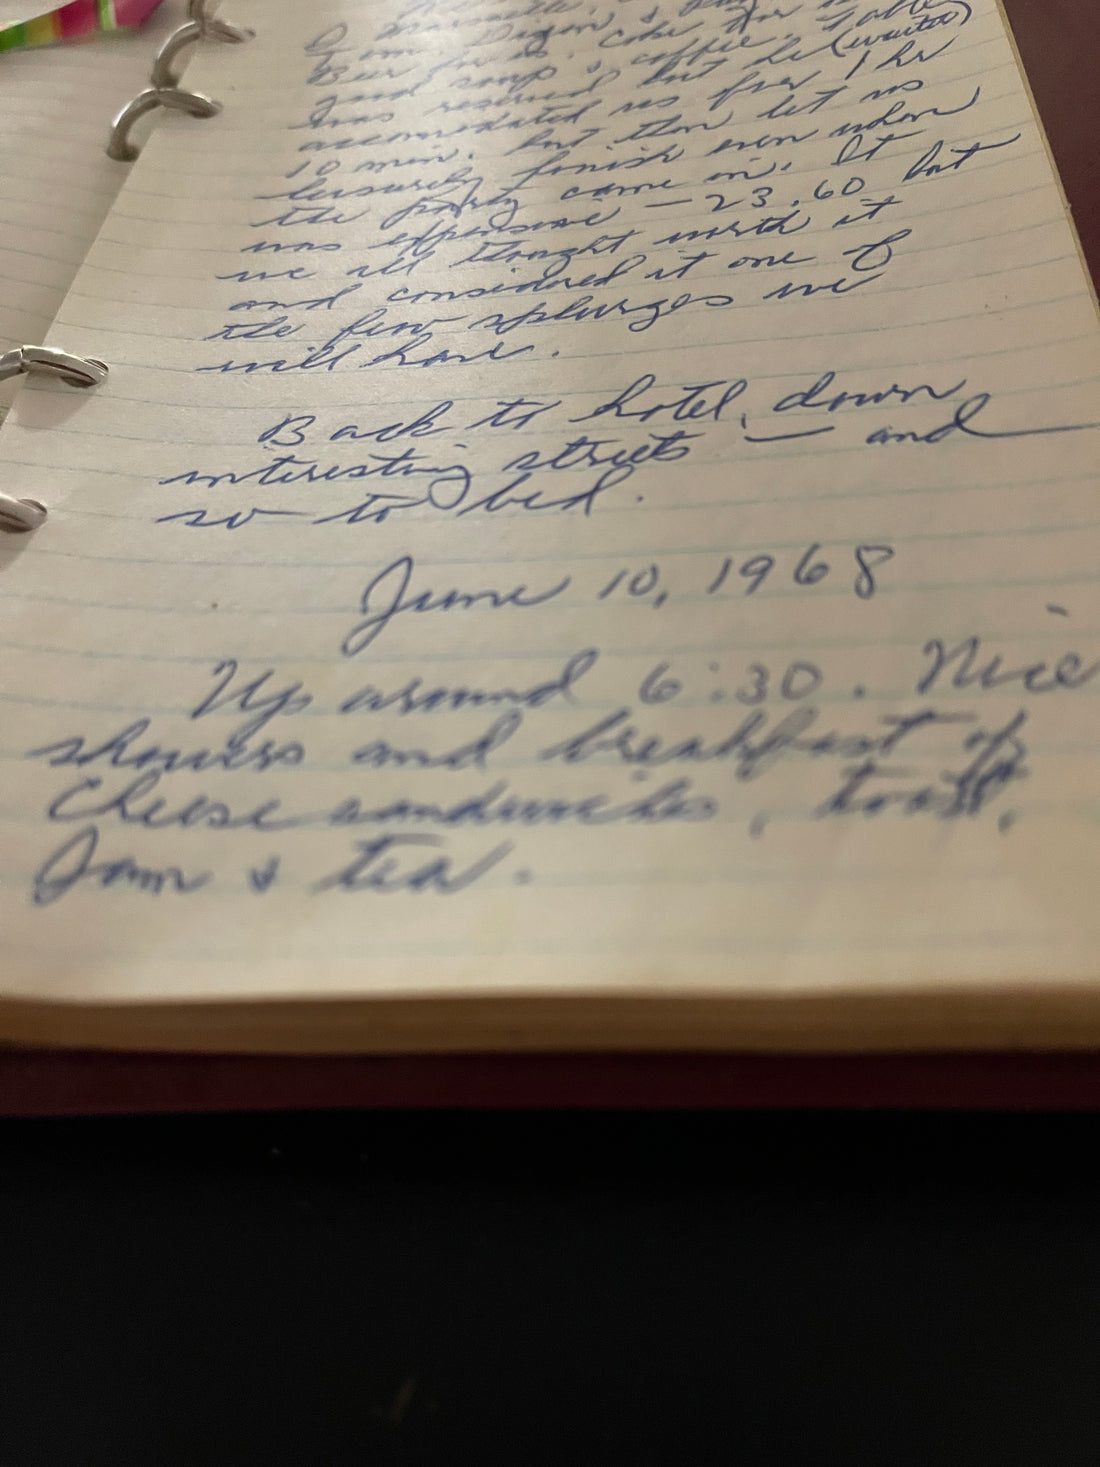 Beer for us. Coke for
good soup & coffee. Table
was reserved but he (waiter)
accomodated us for 1 hr
10 min. but then let us
leisurely finish even when
the party came in. It
was expensive — 23.60 but
we all thought worth it
and considered it one of
the few splurges we
will have.
Back to hotel, down
interesting streets — and
so to bed.
June 10, 1968
Up around 6:30. Nice
showers and breakfast of
Cheese sandwiches, toast,
Jam & tea.